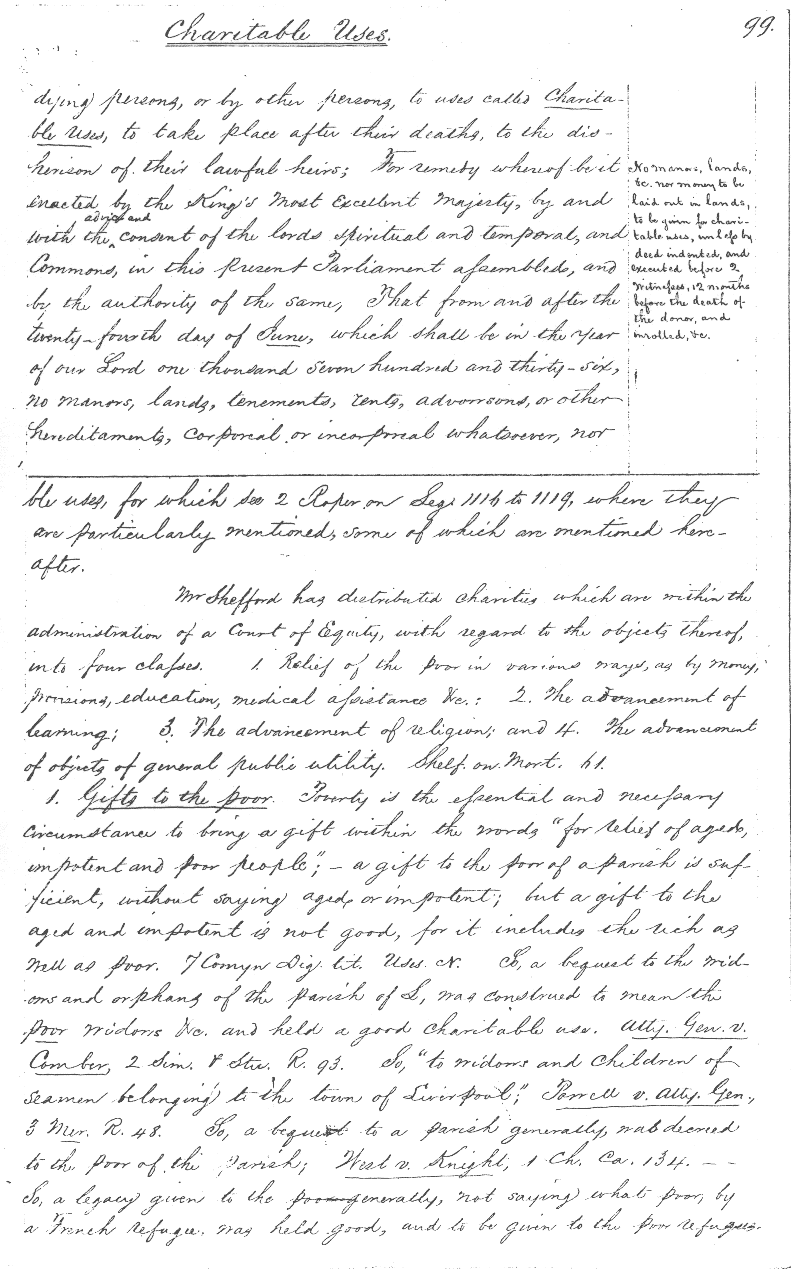 Charitable Uses.
99.
dying persons, or by other persons, to uses called Charita-
ble Uses, to take place after their deaths, to the dis-
herison of their lawful heirs; For remedy whereof be it
enacted by the King's Most Excellent Majesty, by and
advice and
with the consent of the lords spiritual and temporal, and
Commons, in this present Parliament assembled, and
by the authority of the same, That from and after the
twenty-fourth day of June, which shall be in the year
of our Lord one thousand seven hundred and thirty-six,
no manors, lands, tenements, rents, advowsons, or other
hereditaments, corporeal or incorporeal whatsoever, nor
No manors, lands,
&c. nor money to be
laid out in lands,
to be given for chari-
table uses, unless by
deed indented, and
executed before 2
witnesses, 12 months
before the death of
the donor, and
inrolled, &c.
ble uses, for which see 2 Roper on Leg. 1116 to 1119, where they
are particularly mentioned, some of which are mentioned here-
after.
Mr Shelford has distributed charities which are within the
administration of a Court of Equity, with regard to the objects thereof,
into four classes. 1. Relief of the poor in various ways, as by money,
provisions, education, medical assistance &c.: 2. The advancement of
learning; 3. The advancement of religion; and 4. The advancement
of objects of general public utility. Shelf. on Mort. 61.
1. Gifts to the poor. Poverty is the essential and necessary
circumstance to bring a gift within the words "for relief of aged,
impotent and poor people"; - a gift to the poor of a parish is suf-
ficient, without saying aged, or impotent; but a gift to the
aged and impotent is not good, for it includes the rich as
well as poor. 7 Comyn Dig. tit. Uses. N. So, a bequest to the wid-
ows and orphans of the parish of L, was construed to mean the
poor widows &c. and held a good charitable use. Atty. Gen. v.
Comber, 2 Sim. & Stu. R. 93. So, "to widows and children of
seamen belonging to the town of Liverpool"; Powell v. Atty. Gen.,
3 Mer. R. 48. So, a bequest to a parish generally, was decreed
to the poor of the parish; West v. Knight, 1 Ch. Ca. 134. - -
So, a legacy given to the poor generally, not saying what poor, by
a French refugee, was held good, and to be given to the poor refugees.